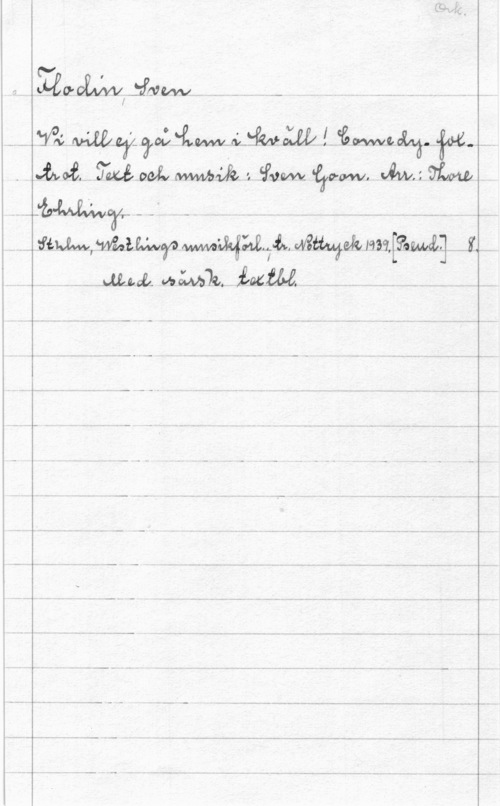 Ork.
Flodin, Sven
Vi vill ej gå hem i kväll! Comedy-fox-
trot. Text och musik: Sven Goon. Arr.: Thore
Ehrling.
Sthlm, Westlings musikförl., tr. Nottryck 1939. [Pseud.] 8.
Med särsk. textbl.